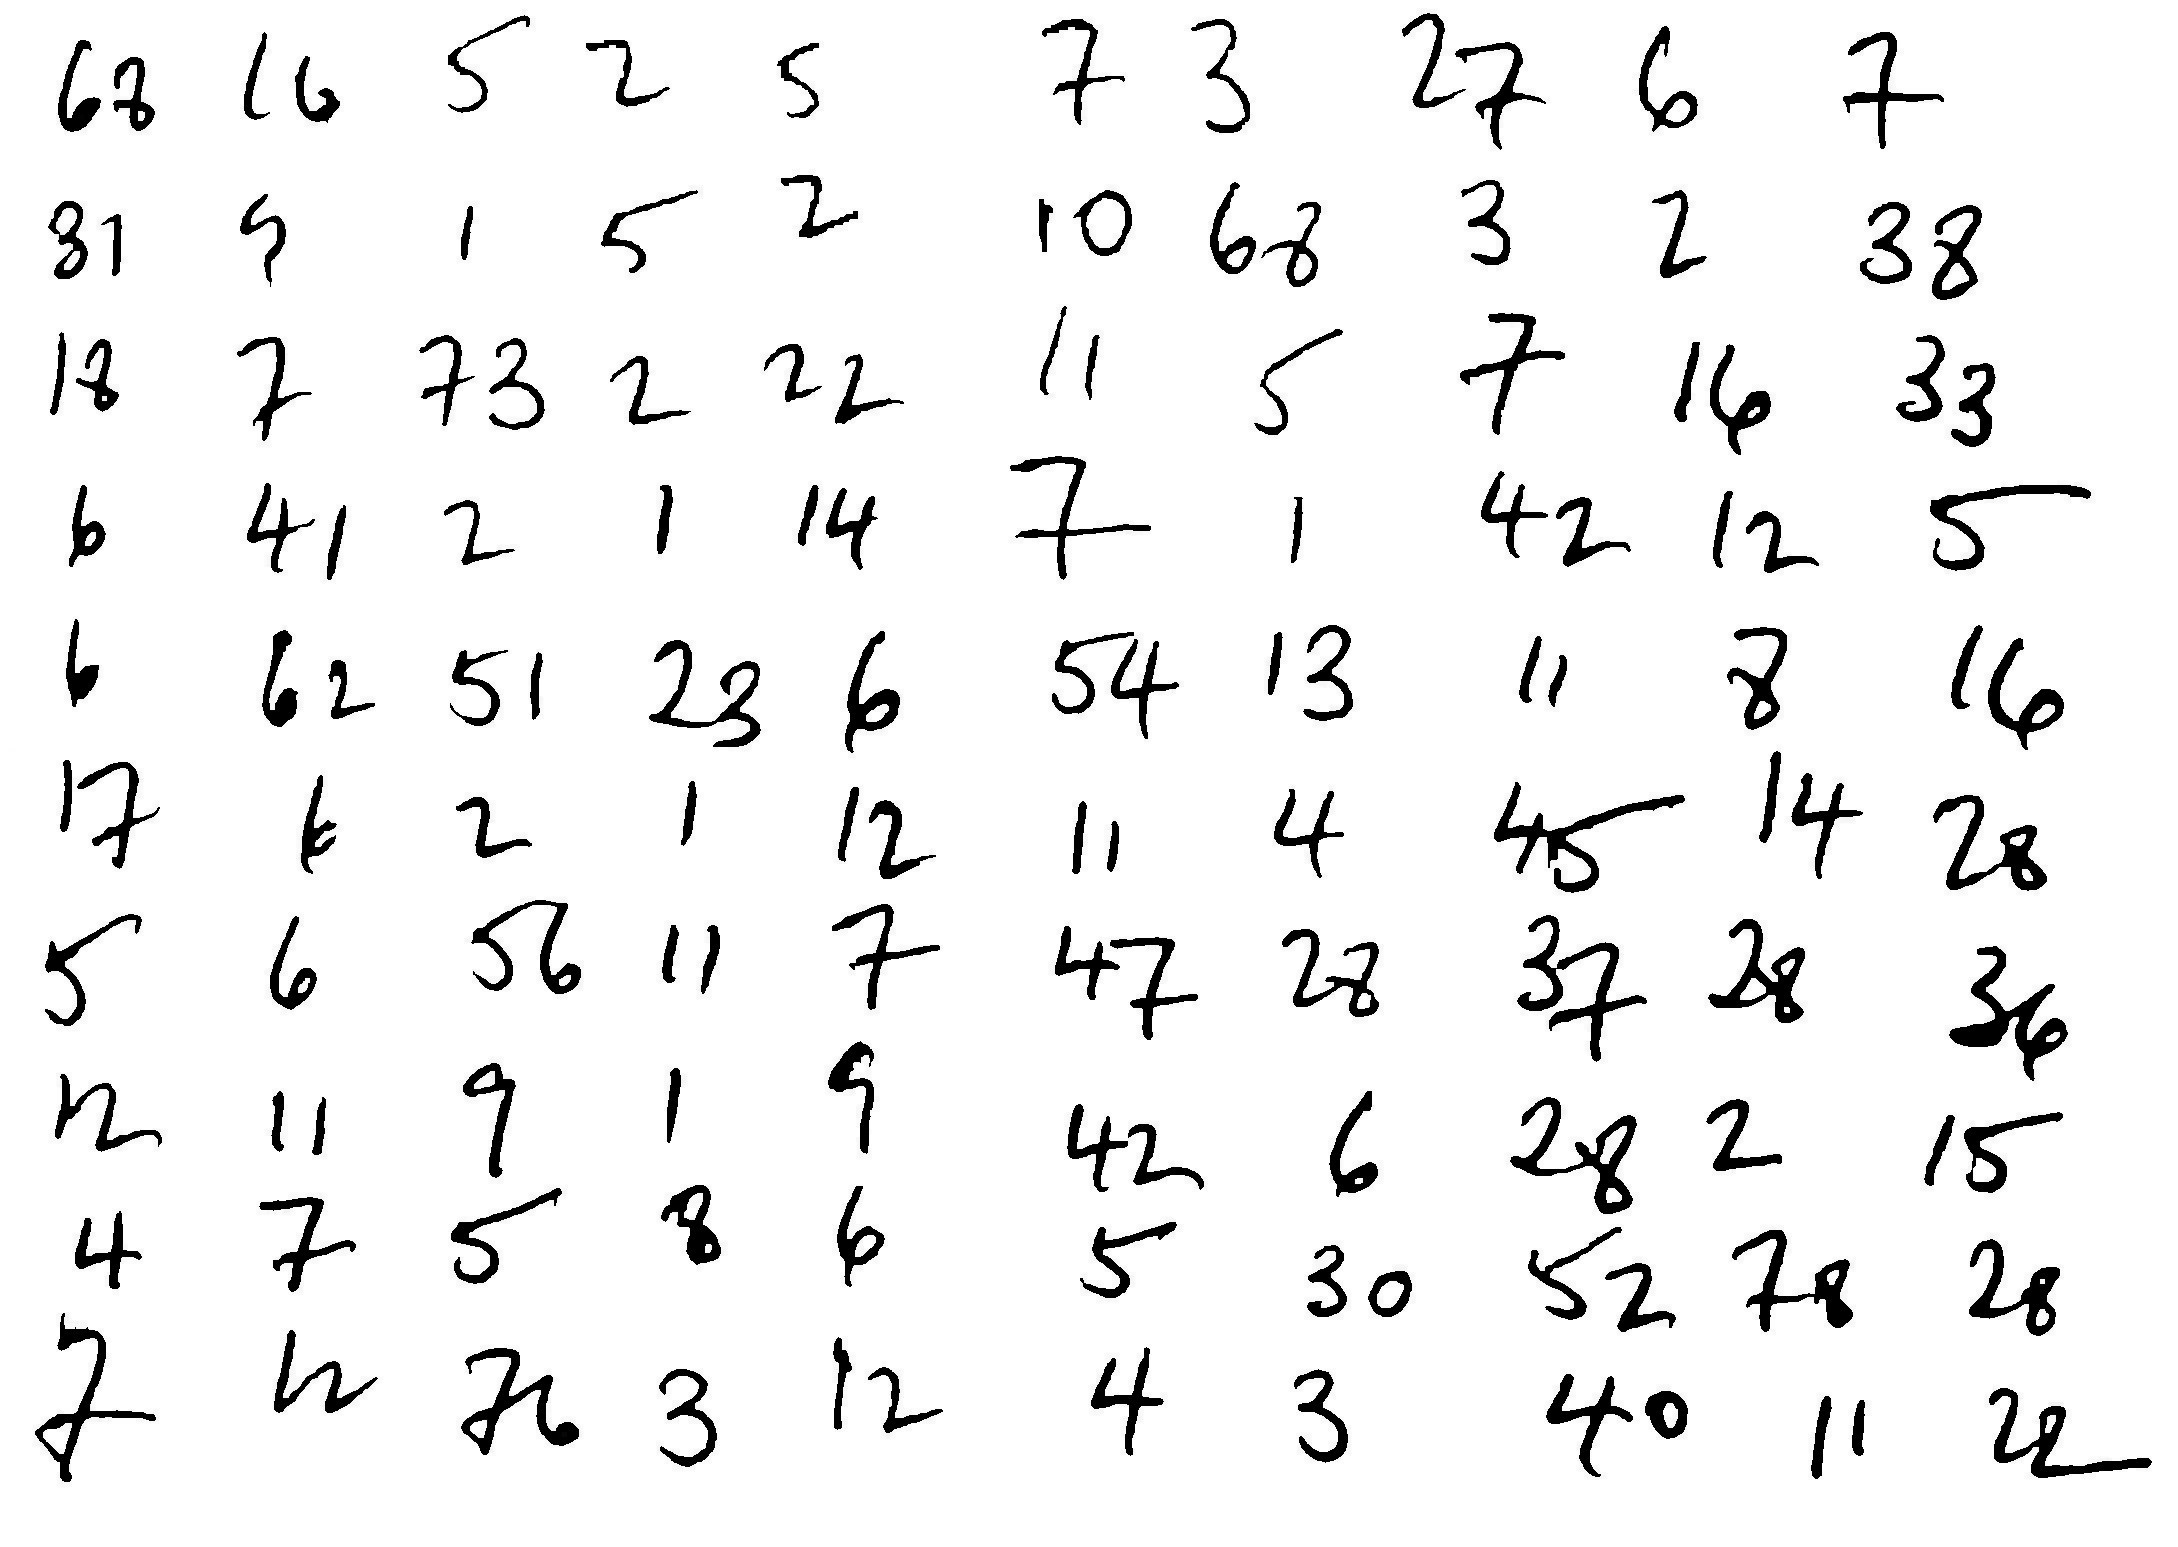 68 16 5 2 5 7 3 27 6 7
31 9 1 5 2 10 68 3 2 38
18 7 73 2 22 11 5 7 16 33
6 41 2 1 14 7 1 42 12 5
6 62 51 23 6 54 13 11 8 16
17 6 2 1 12 11 4 45 14 28
5 6 56 11 7 47 28 37 28 36
12 11 9 1 9 42 6 28 2 15
4 7 5 8 6 5 30 52 78 28
7 12 76 3 12 4 3 40 11 22